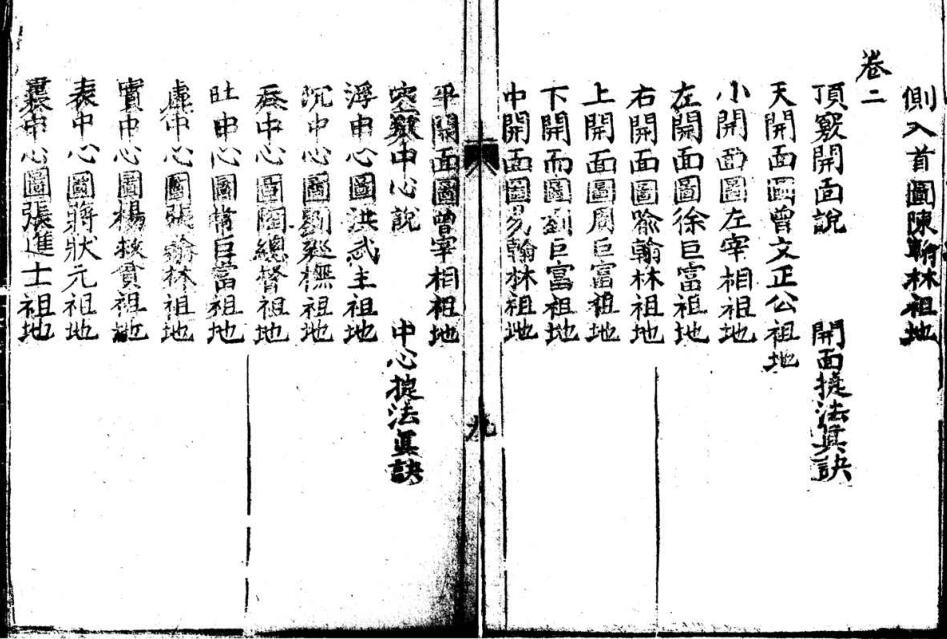 側入首圖陳翰林祖地
卷二
頂竅開面說 開面捷法真訣
天開面圖曾文正公祖地
小開面圖左宰相祖地
左開面圖徐巨富祖地
右開面圖喻翰林祖地
上開面圖周巨富祖地
下開面圖劉巨富祖地
中開面圖易翰林祖地
九
平開面圖曾宰相祖地
竅中心說 中心捷法真訣
浮中心圖洪武主祖地
沉中心圖劉巡撫祖地
吞中心圖陶總督祖地
吐中心圖常巨富祖地
虛中心圖張翰林祖地
實中心圖楊救貧祖地
表中心圖蔣狀元祖地
裏中心圖張進士祖地